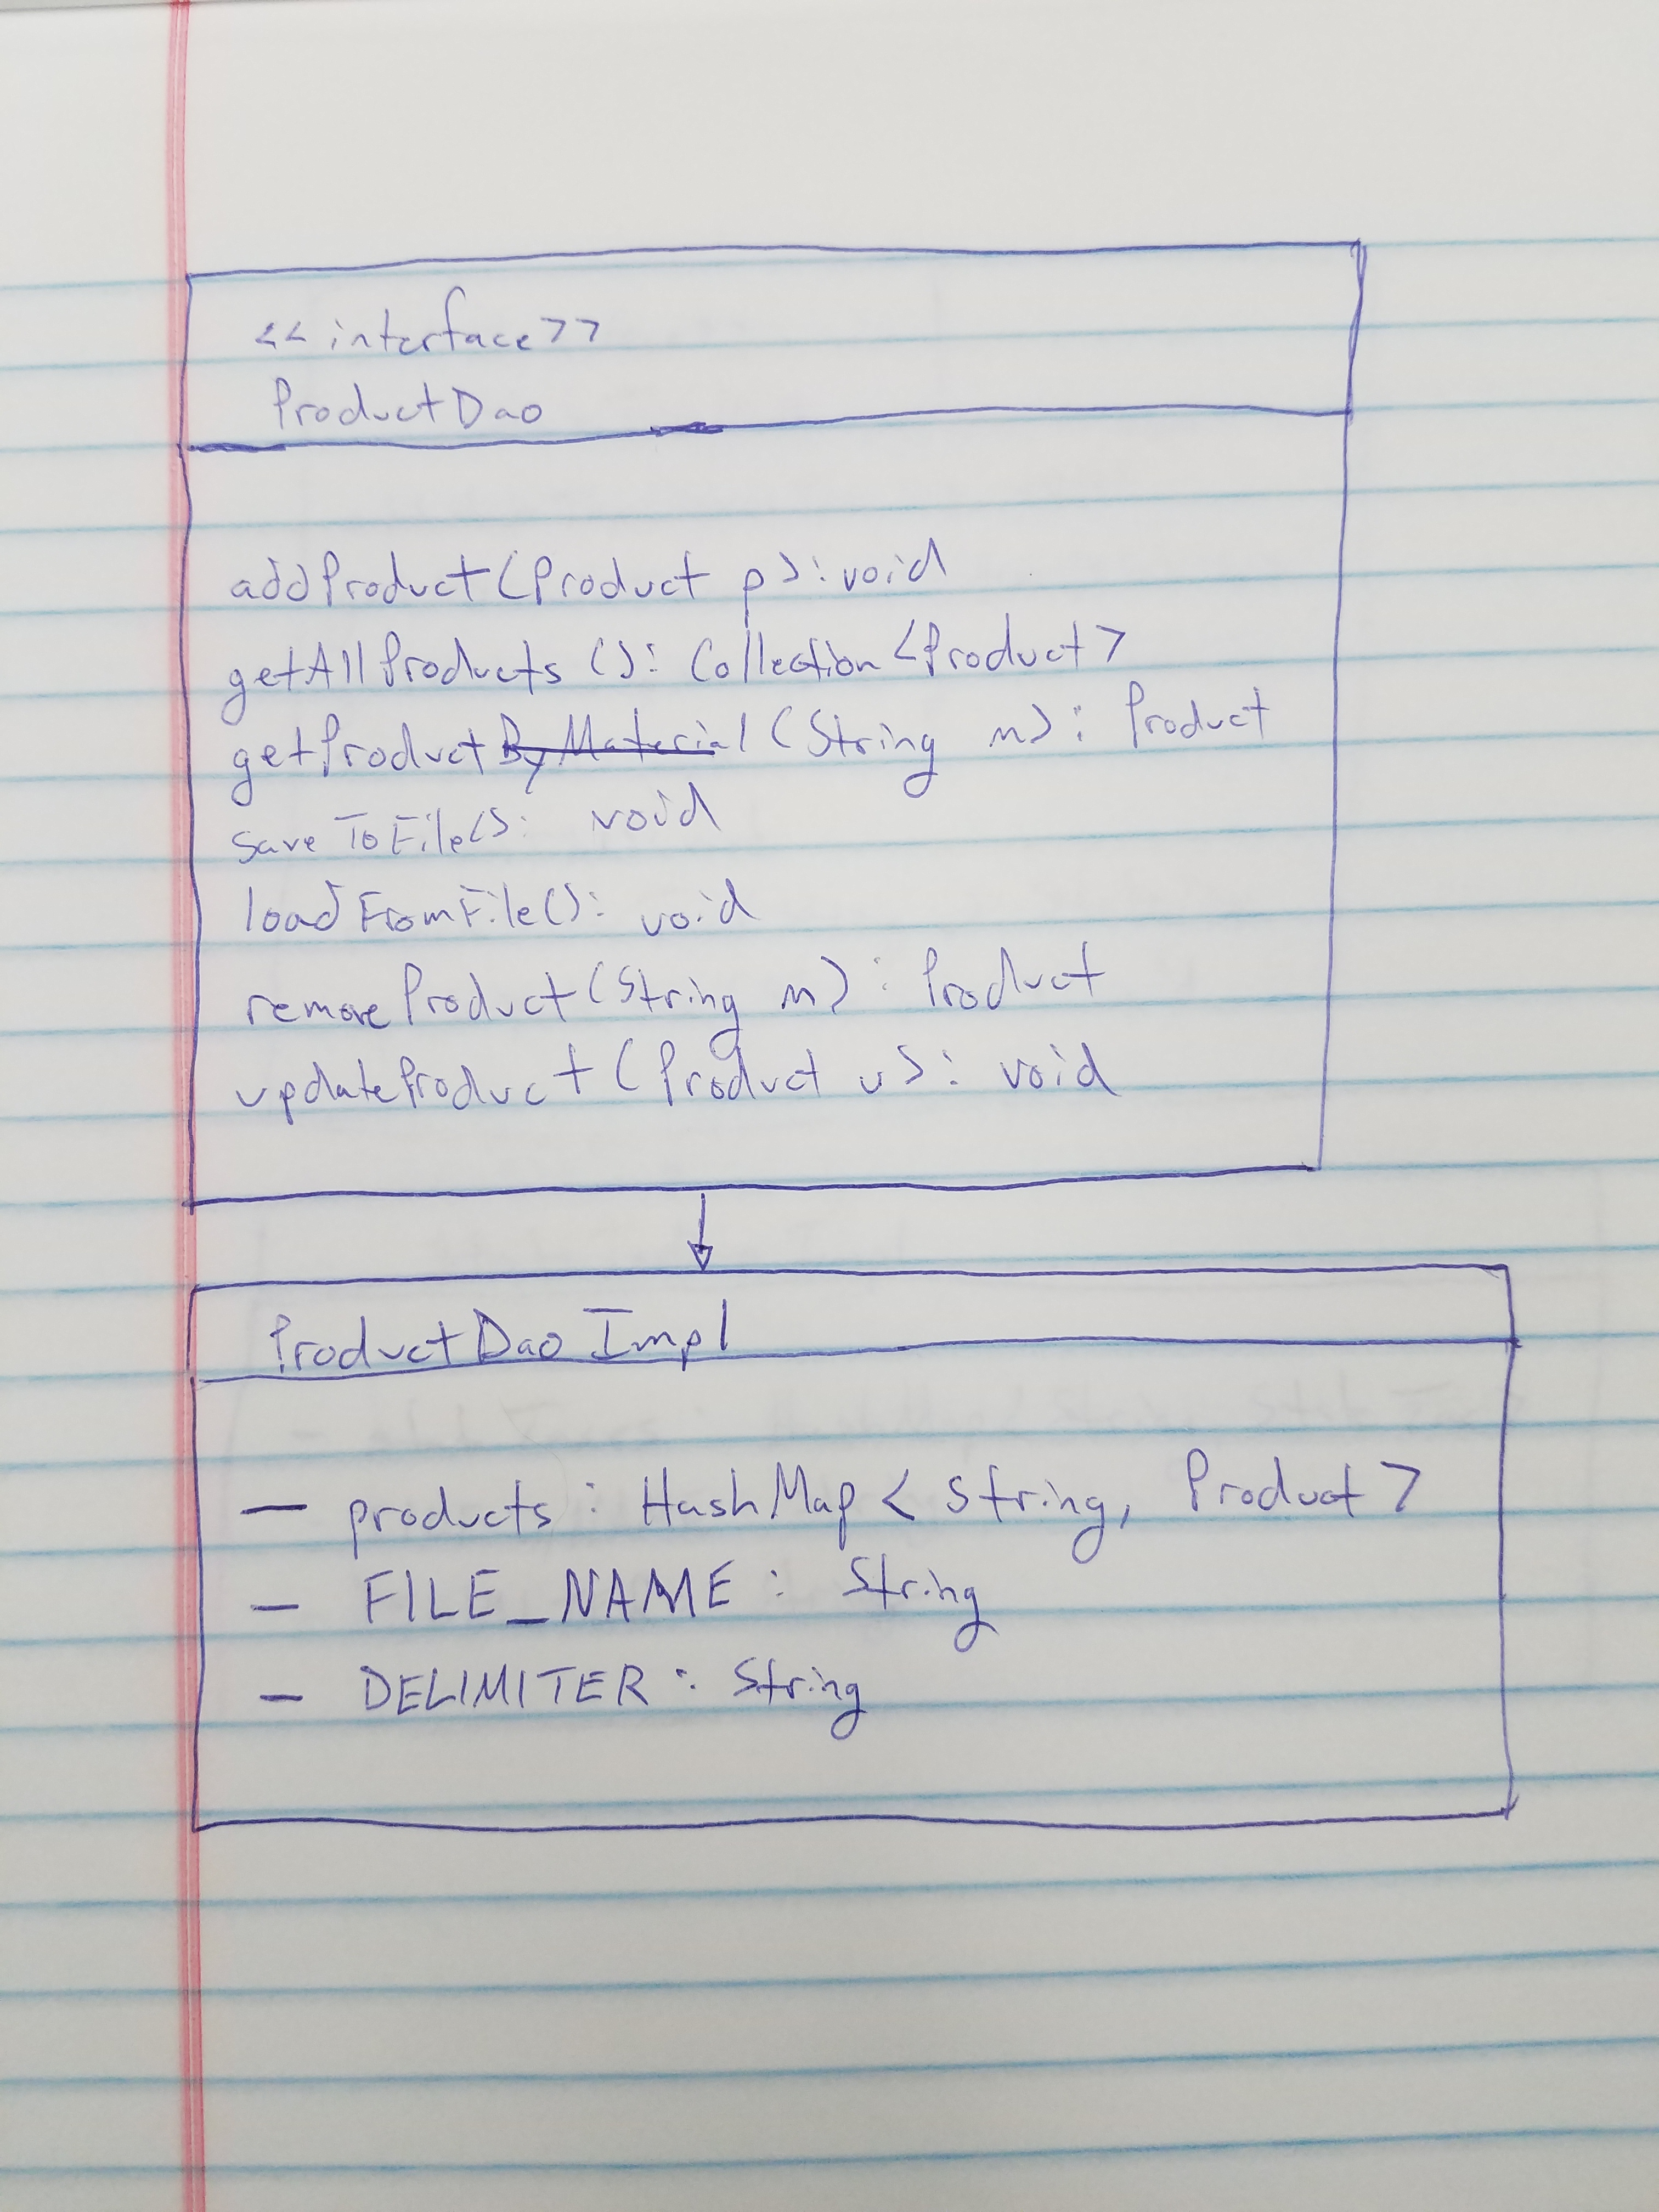 <<interface>>
ProductDao
addProduct(Product p): void
getAllProducts(): Collection<Product>
getProductByMaterial(String m): Product
saveToFile(): void
loadFromFile(): void
removeProduct(String m): Product
updateProduct(Product u): void
ProductDaoImpl
- products: HashMap<String, Product>
- FILE_NAME: String
- DELIMITER: String